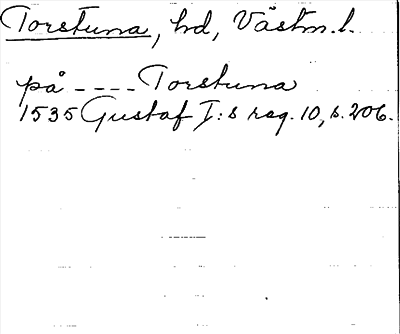 Torstuna, hd, Västm. l.
på ---- Torstuna
1535 Gustaf I:s reg. 10, s. 206.